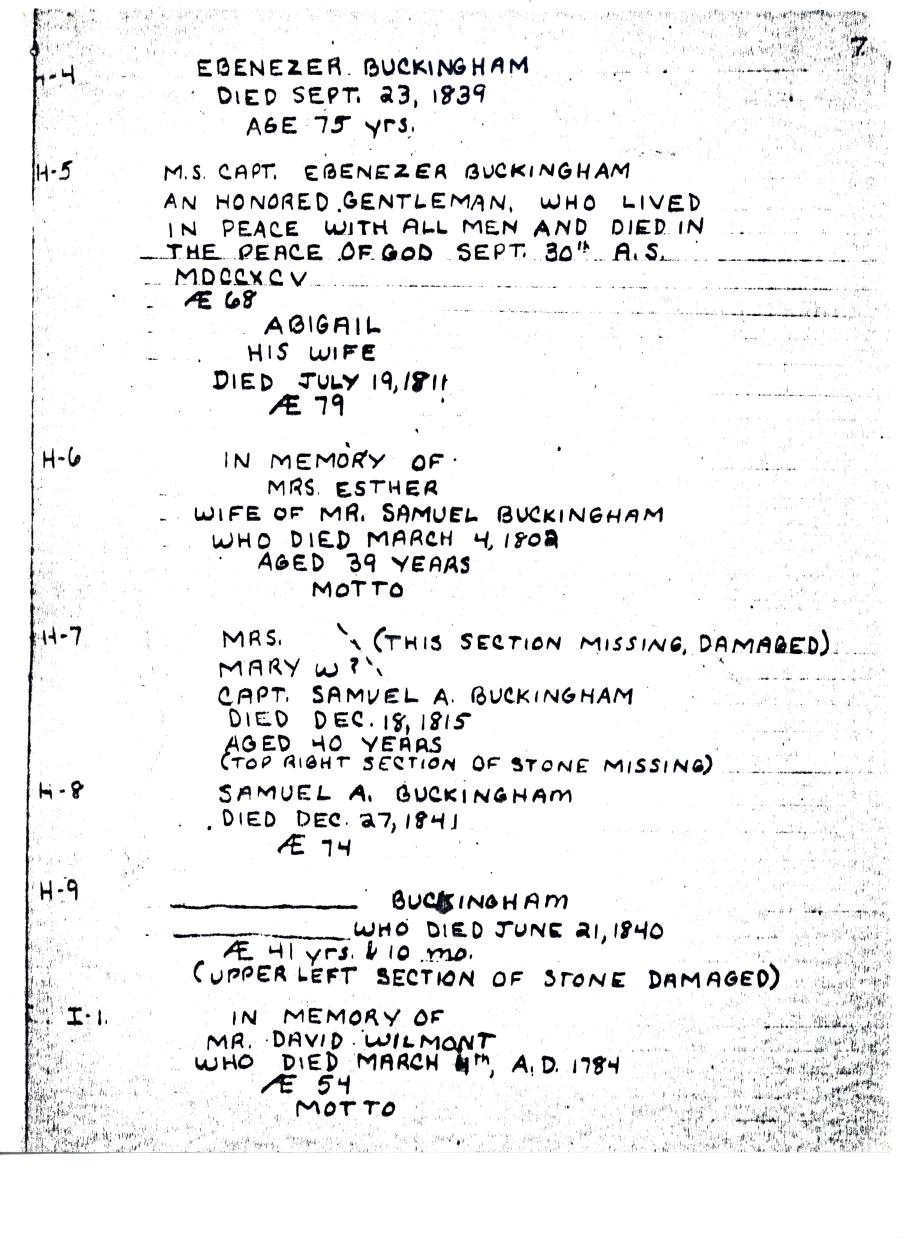 7
H-4 EBENEZER BUCKINGHAM
DIED SEPT. 23, 1839
AGE 75 yrs.
H-5 M.S. CAPT. EBENEZER BUCKINGHAM
AN HONORED GENTLEMAN, WHO LIVED
IN PEACE WITH ALL MEN AND DIED IN
THE PEACE OF GOD SEPT. 30th A.S.
MDCCXCV
Æ 68
ABIGAIL
HIS WIFE
DIED JULY 19, 1811
Æ 79
H-6 IN MEMORY OF
MRS. ESTHER
WIFE OF MR. SAMUEL BUCKINGHAM
WHO DIED MARCH 4, 1802
AGED 39 YEARS
MOTTO
H-7 MRS. (THIS SECTION MISSING, DAMAGED)
MARY W ?
CAPT. SAMUEL A. BUCKINGHAM
DIED DEC. 18, 1815
AGED 40 YEARS
(TOP RIGHT SECTION OF STONE MISSING)
H-8 SAMUEL A. BUCKINGHAM
DIED DEC. 27, 1841
Æ 74
H-9 BUCKINGHAM
WHO DIED JUNE 21, 1840
Æ 41 yrs. & 10 mo.
(UPPER LEFT SECTION OF STONE DAMAGED)
I-1. IN MEMORY OF
MR. DAVID WILMONT
WHO DIED MARCH 4th, A.D. 1784
Æ 54
MOTTO